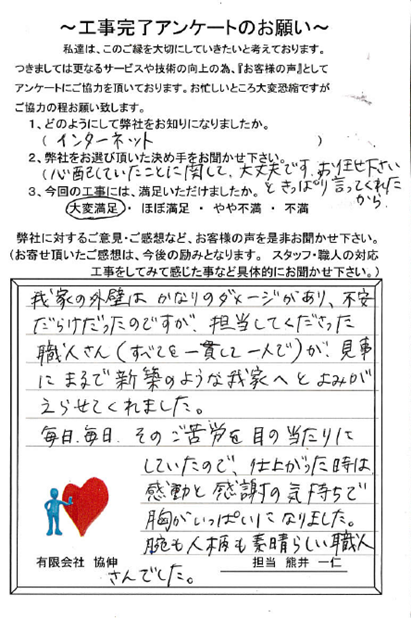 ～工事完了アンケートのお願い～
私達は、このご縁を大切にしていきたいと考えております。
つきましては更なるサービスや技術の向上の為、『お客様の声』として
アンケートにご協力を頂いております。お忙しいところ大変恐縮ですが
ご協力の程お願い致します。
1、どのようにして弊社をお知りになりましたか。
（インターネット）
2、弊社をお選び頂いた決め手をお聞かせ下さい。
（心配していたことに関して、大丈夫です。お任せ下さい
ときっぱり言ってくれた
から。
3、今回の工事には、満足いただけましたか。
大変満足・ほぼ満足・やや不満・不満
弊社に対するご意見・ご感想など、お客様の声を是非お聞かせ下さい。
(お寄せ頂いたご感想は、今後の励みとなります。スタッフ・職人の対応
工事をしてみて感じた事など具体的にお聞かせ下さい。)
我家の外壁は かなりのダメージがあり、不安
だらけだったのですが、担当してくださった
職人さん（すべてを一貫して一人で）が、見事
に まるで新築のような我家へと よみが
えらせてくれました。
毎日、毎日、そのご苦労を目の当たりに
していたので、仕上がった時は
感動と感謝の気持ちで
胸がいっぱいになりました。
腕も人柄も素晴らしい職人
さんでした。
有限会社 協伸
担当 熊井 一仁